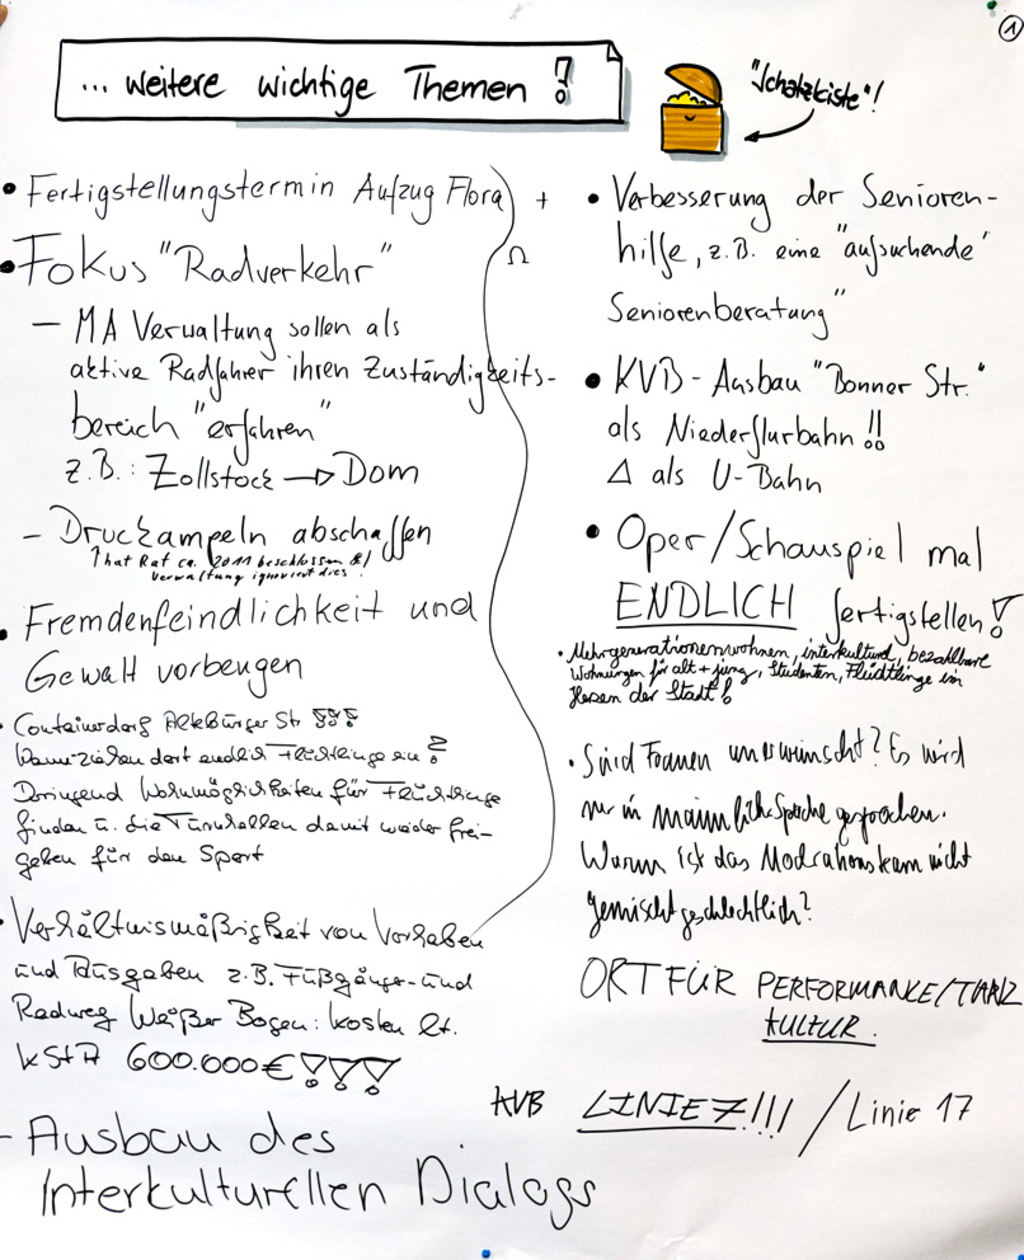 1
... weitere wichtige Themen !
"Schatzkiste"!
• Fertigstellungstermin Aufzug Flora
• Fokus "Radverkehr"
- MA Verwaltung sollen als
aktive Radfahrer ihren Zuständigkeits-
bereich "erfahren"
z.B.: Zollstock → Dom
- Druckampeln abschaffen
↑ hat Rat ca. 2011 beschlossen &/
Verwaltung ignoriert dies!
• Fremdenfeindlichkeit und
Gewalt vorbeugen
• Containerdorf Alteburger Str !!!
Wann ziehen dort endlich Flüchtlinge ein?
Dringend Wohnmöglichkeiten für Flüchtlinge
finden u. die Turnhallen damit wieder frei-
geben für den Sport
• Verhältnismäßigkeit von Vorhaben
und Ausgaben z.B. Fußgänger- und
Radweg Weißer Bogen: Kosten lt.
KStA 600.000 € !!!
- Ausbau des
Interkulturellen Dialogs
+
Ω
• Verbesserung der Senioren-
hilfe, z.B. eine "aufsuchende"
Seniorenberatung"
• KVB-Ausbau "Bonner Str."
als Niederflurbahn!!
Δ als U-Bahn
• Oper/Schauspiel mal
ENDLICH fertigstellen!
• Mehrgenerationenwohnen, interkulturel, bezahlbare
Wohnungen für alt + jung, Studenten, Flüchtlinge im
Herzen der Stadt!
• Sind Frauen unerwünscht? Es wird
nur in männliche Sprache gesprochen.
Warum ist das Modrationsteam nicht
gemischt geschlechtlich?
ORT FÜR PERFORMANCE/TANZ
KULTUR.
KVB LINIE 7!!! / Linie 17